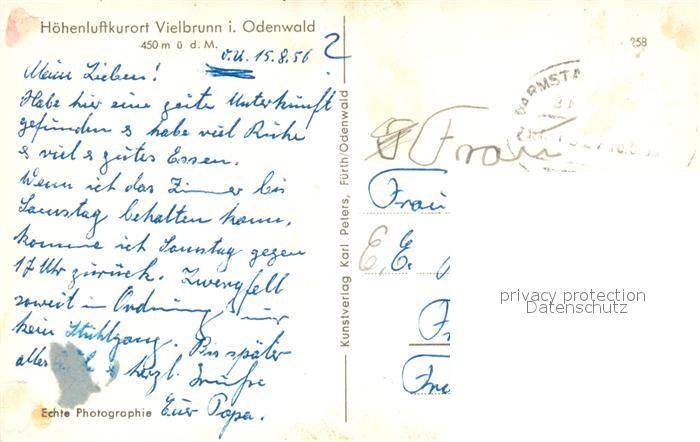 Höhenluftkurort Vielbrunn i. Odenwald
450 m ü. d. M.
V.U. 15.8.56
2
258
Meine Lieben!
Habe hier eine gute Unterkunft
gefunden & habe viel Ruhe
& viel & gutes Essen.
Wenn ich das Zimmer bis
Samstag behalten kann,
komme ich Samstag gegen
17 Uhr zurück. Zwergfell
soweit in Ordnung, nur
kein Stuhlgang. Bis später
alles & herzl. Grüße
Euer Papa.
Echte Photographie
Kunstverlag Karl Peters, Fürth/Odenwald
DARMSTA
Frau
Frau
E. E.
privacy protection
Datenschutz